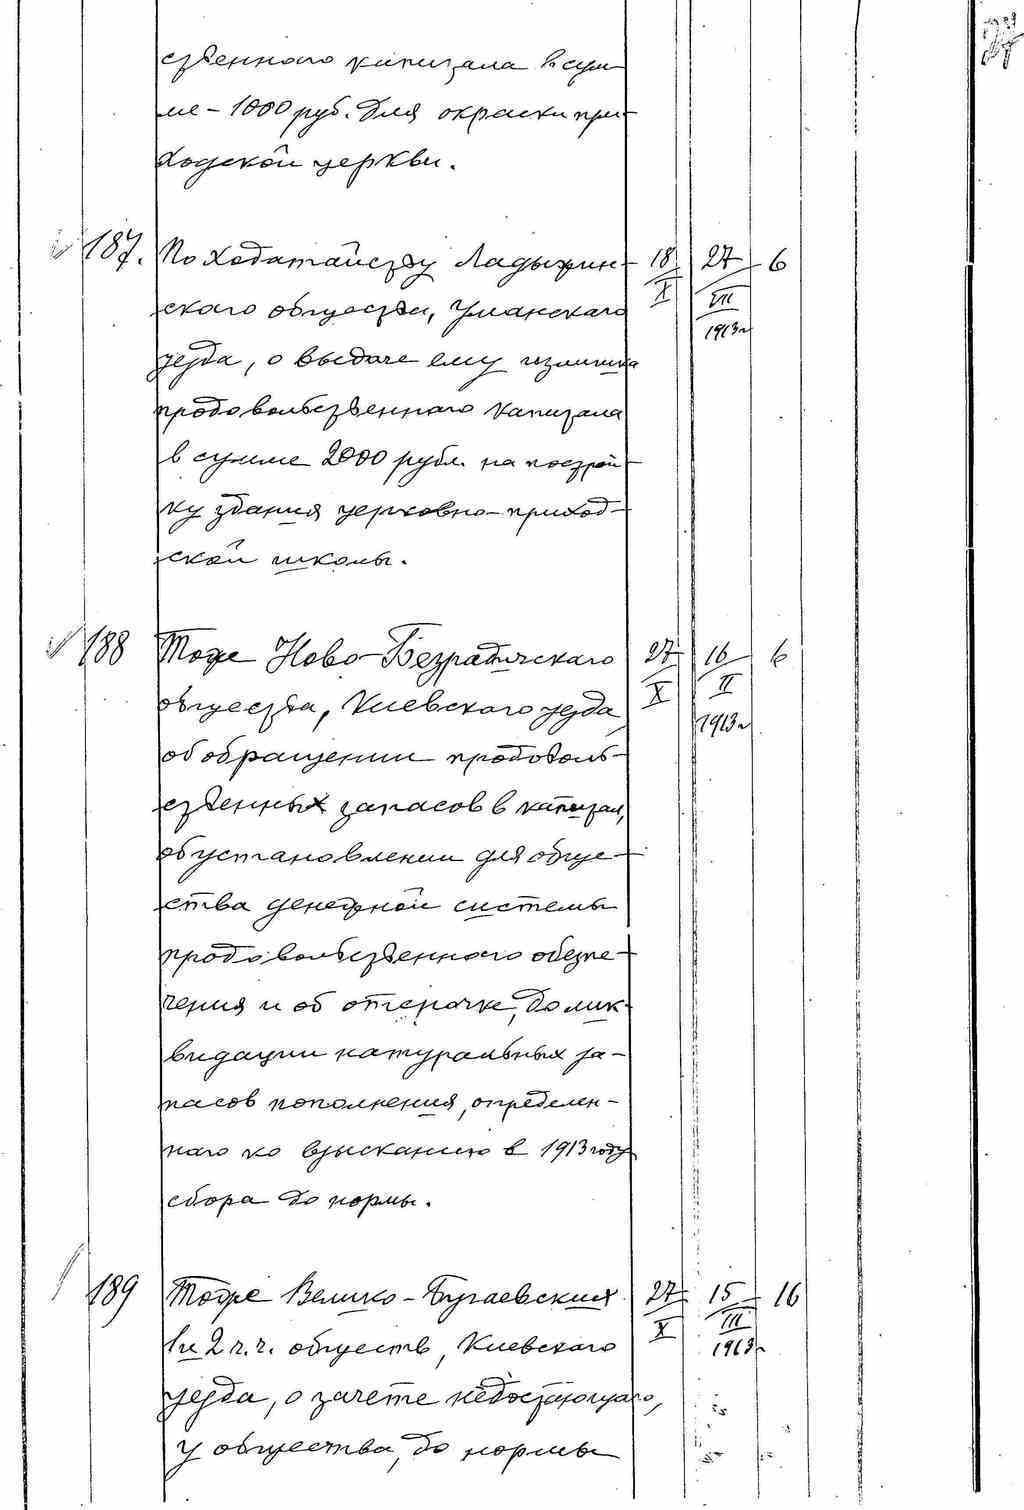 ственного капитала в сум-
ме - 1000 руб. для окраски при-
ходской церкви.
187. По ходатайству Ладыжин- 18/X 27/VII 1913 г 6
ского общества, Уманскаго
уезда, о выдаче ему излишка
продовольственного капитала
в сумме 2000 рубл. на построй-
ку здания церковно-приход-
ской школы.
188 Тоже Ново-Безрадичскаго 27/X 16/II 1913 г 6
общества, Киевского уезда,
об обращении продоволь-
ственных запасов в капитал,
об установлении для обще-
ства денежной системы
продовольственного обезпе-
чения и об отсрочке, до лик-
видации натуральных за-
пасов пополнения, определен-
наго ко взысканию в 1913 году
сбора до нормы.
189 Тоже Велико-Бугаевских 27/X 15/III 1913 г 16
1 и 2 ч.ч. обществ, Киевского
уезда, о зачете недостающаго,
у общества, до нормы